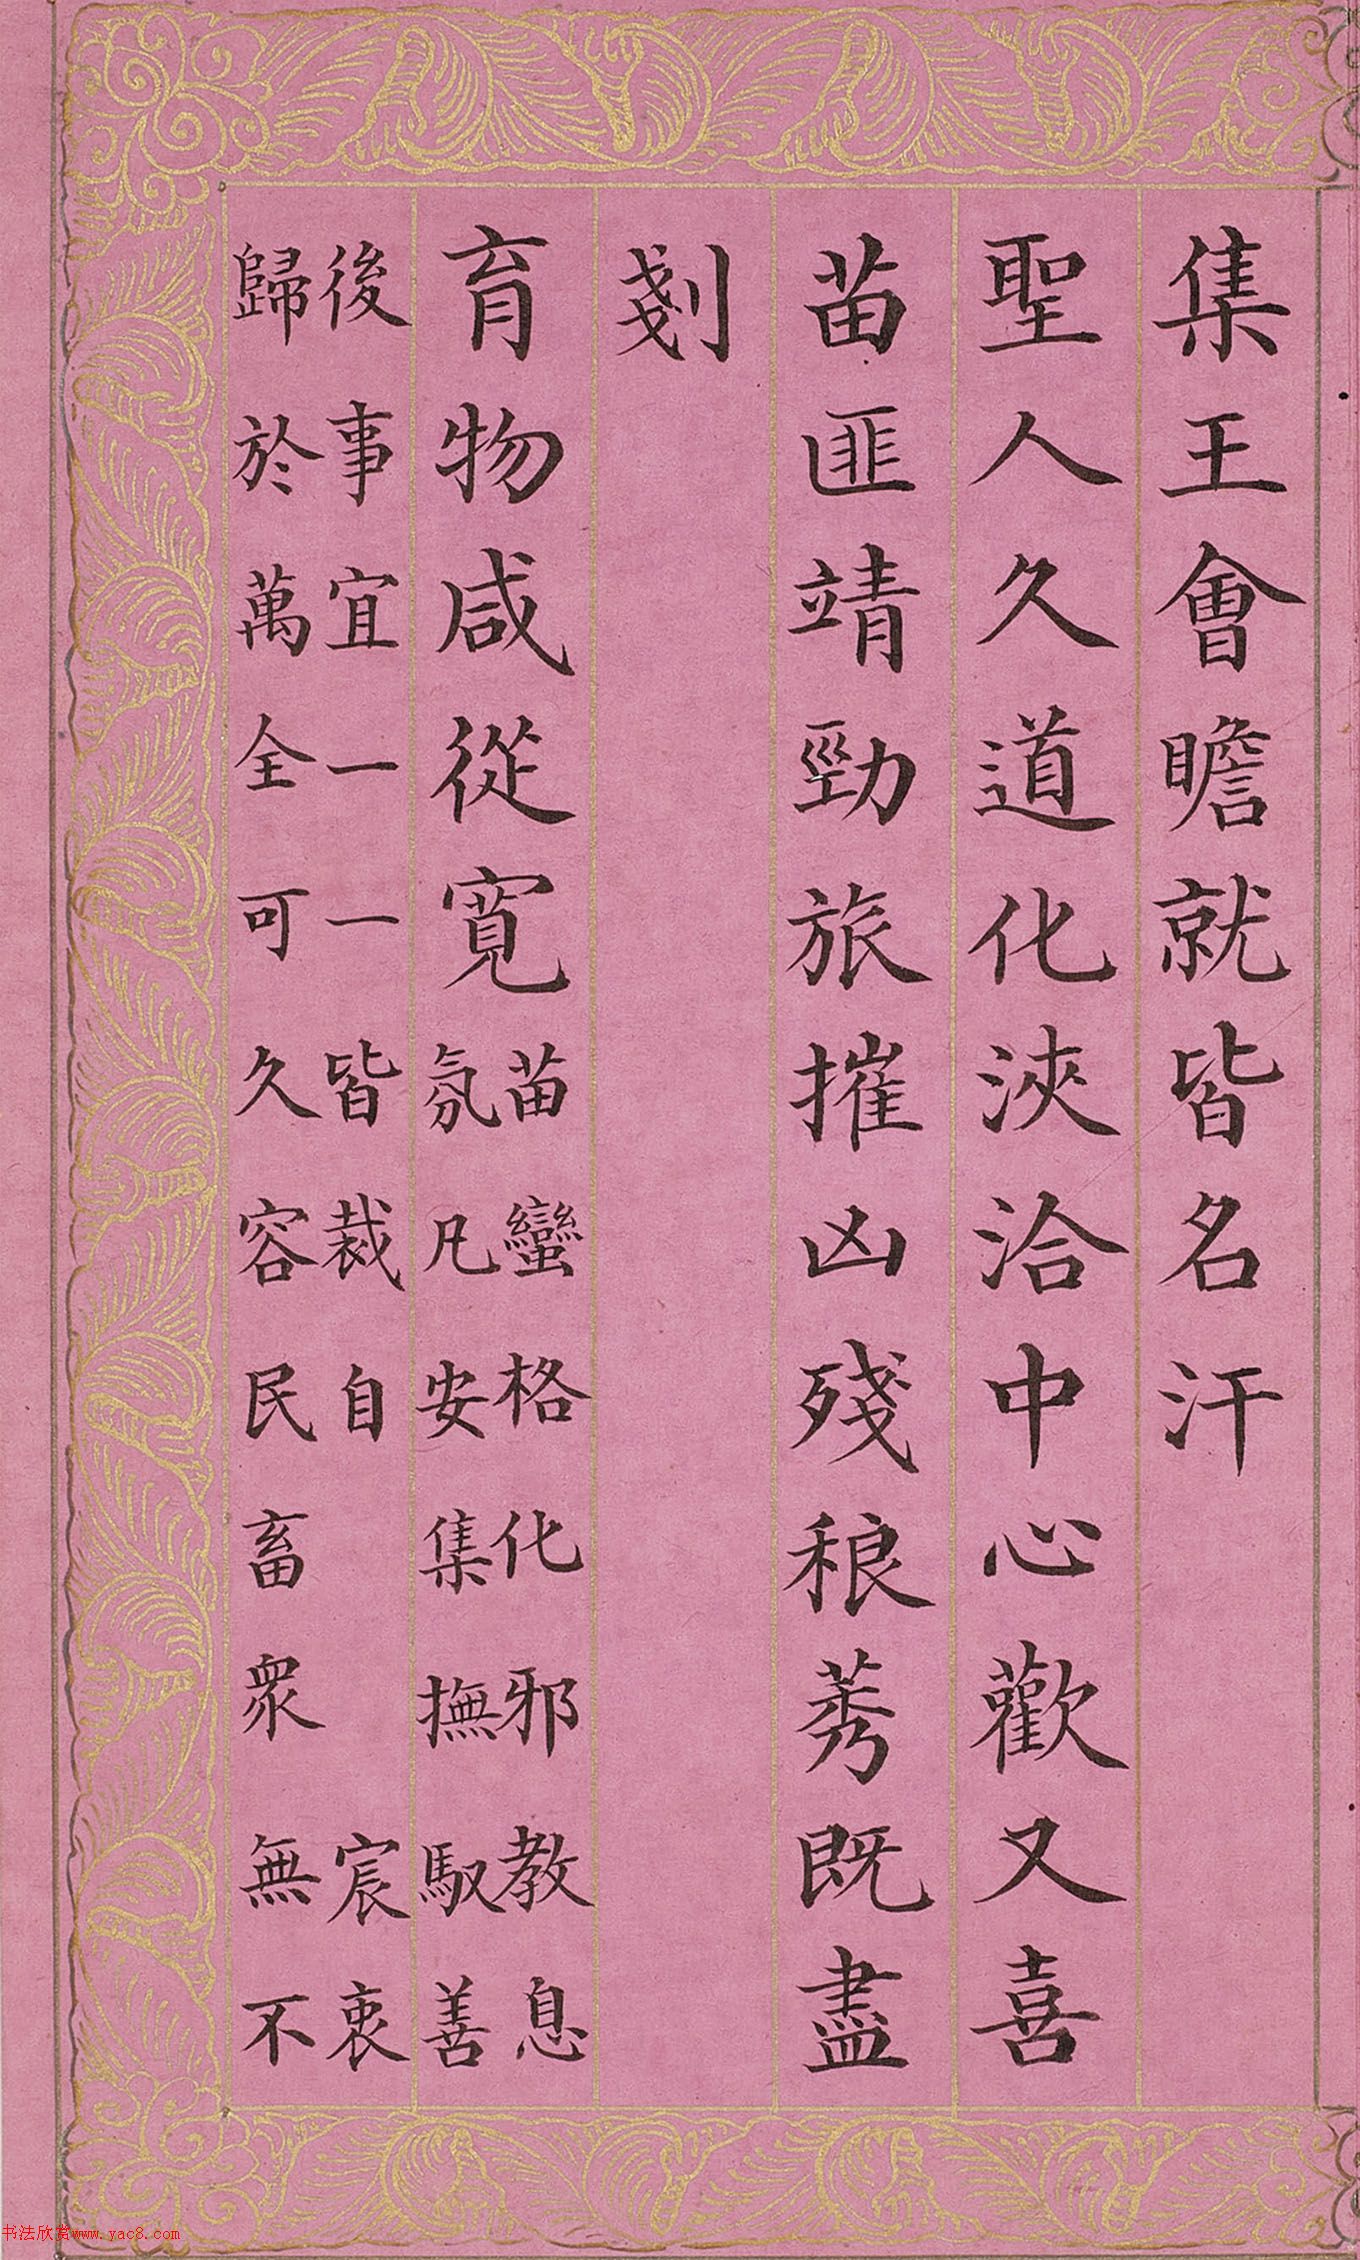 集王會瞻就皆名汗
聖人久道化浹洽中心歡又喜
苗匪靖勁旅摧凶殘稂莠既盡
剗
育物咸從寬
苗蠻格化邪教息
氛凡安集撫馭善
後事宜一一皆裁自 宸衷
歸於萬全可久容民畜衆無不
书法欣赏www.yac8.com